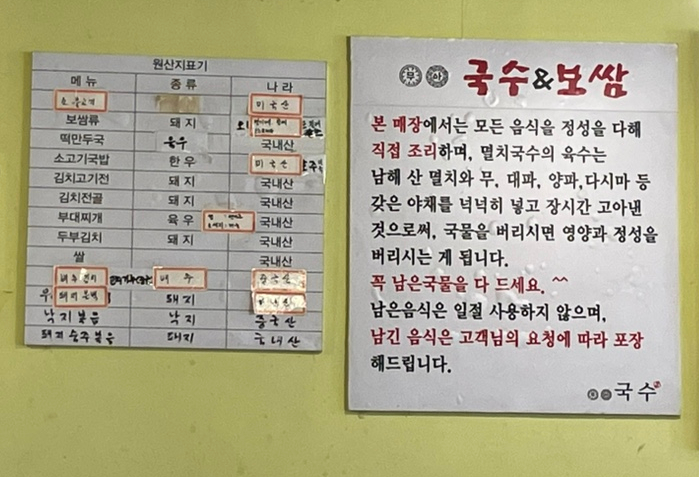 원산지표기
메뉴 종류 나라
소불고기 미국산
보쌈류 돼지
떡만두국 육우 국내산
소고기국밥 한우 미국산
김치고기전 돼지 국내산
김치전골 돼지 국내산
부대찌개 육우 국내산
두부김치 돼지 국내산
쌀 국내산
배추김치 배추 중국산
돼지
낙지볶음 낙지 중국산
돼지 숙주볶음 돼지 국내산
무 아
국수&보쌈
본 매장에서는 모든 음식을 정성을 다해
직접 조리하며, 멸치국수의 육수는
남해 산 멸치와 무, 대파, 양파,다시마 등
갖은 야채를 넉넉히 넣고 장시간 고아낸
것으로써, 국물을 버리시면 영양과 정성을
버리시는 게 됩니다.
꼭 남은국물을 다 드세요. ^^
남은음식은 일절 사용하지 않으며,
남긴 음식은 고객님의 요청에 따라 포장
해드립니다.
국수